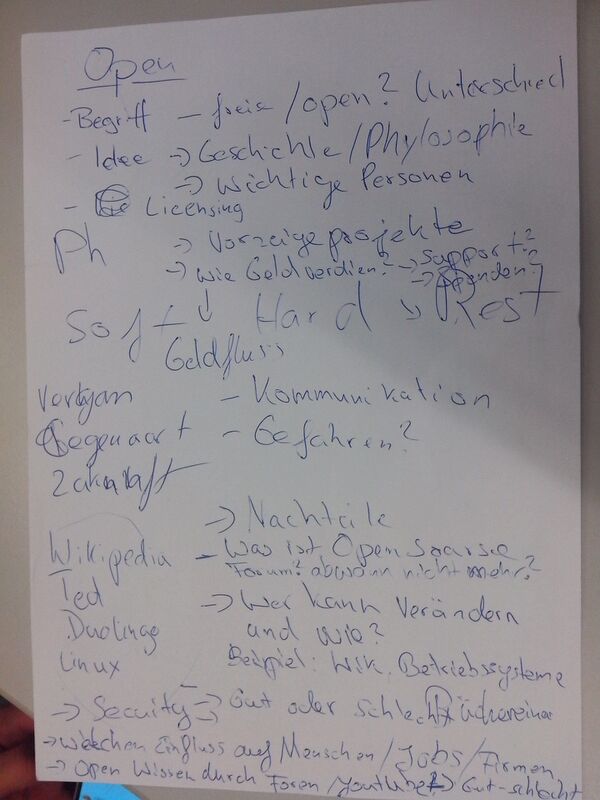 Open
- Begriff - freie / open? Unterschied
- Idee -> Geschichte / Phylosophie
-> Wichtige Personen
- Licensing
Ph -> Vorzeigeprojekte
-> Wie Geld verdien? -> Support?
-> Spenden?
Soft Hard Rest
Geldfluss
Vergan - Kommunikation
Gegenwart - Gefahren?
Zukunft
-> Nachteile
Wikipedia - Was ist Open Soarse
Forum? abwann nicht mehr?
Ted -> Wer kann Verändern
Duolingo und wie?
Linux Beispiel: Wik. Betriebssysteme
-> Security -> Gut oder schlecht
-> welchen Einfluss auf Menschen / Jobs / Firmen
-> Open Wissen durch Foren / Youtube -> Gut-schlecht